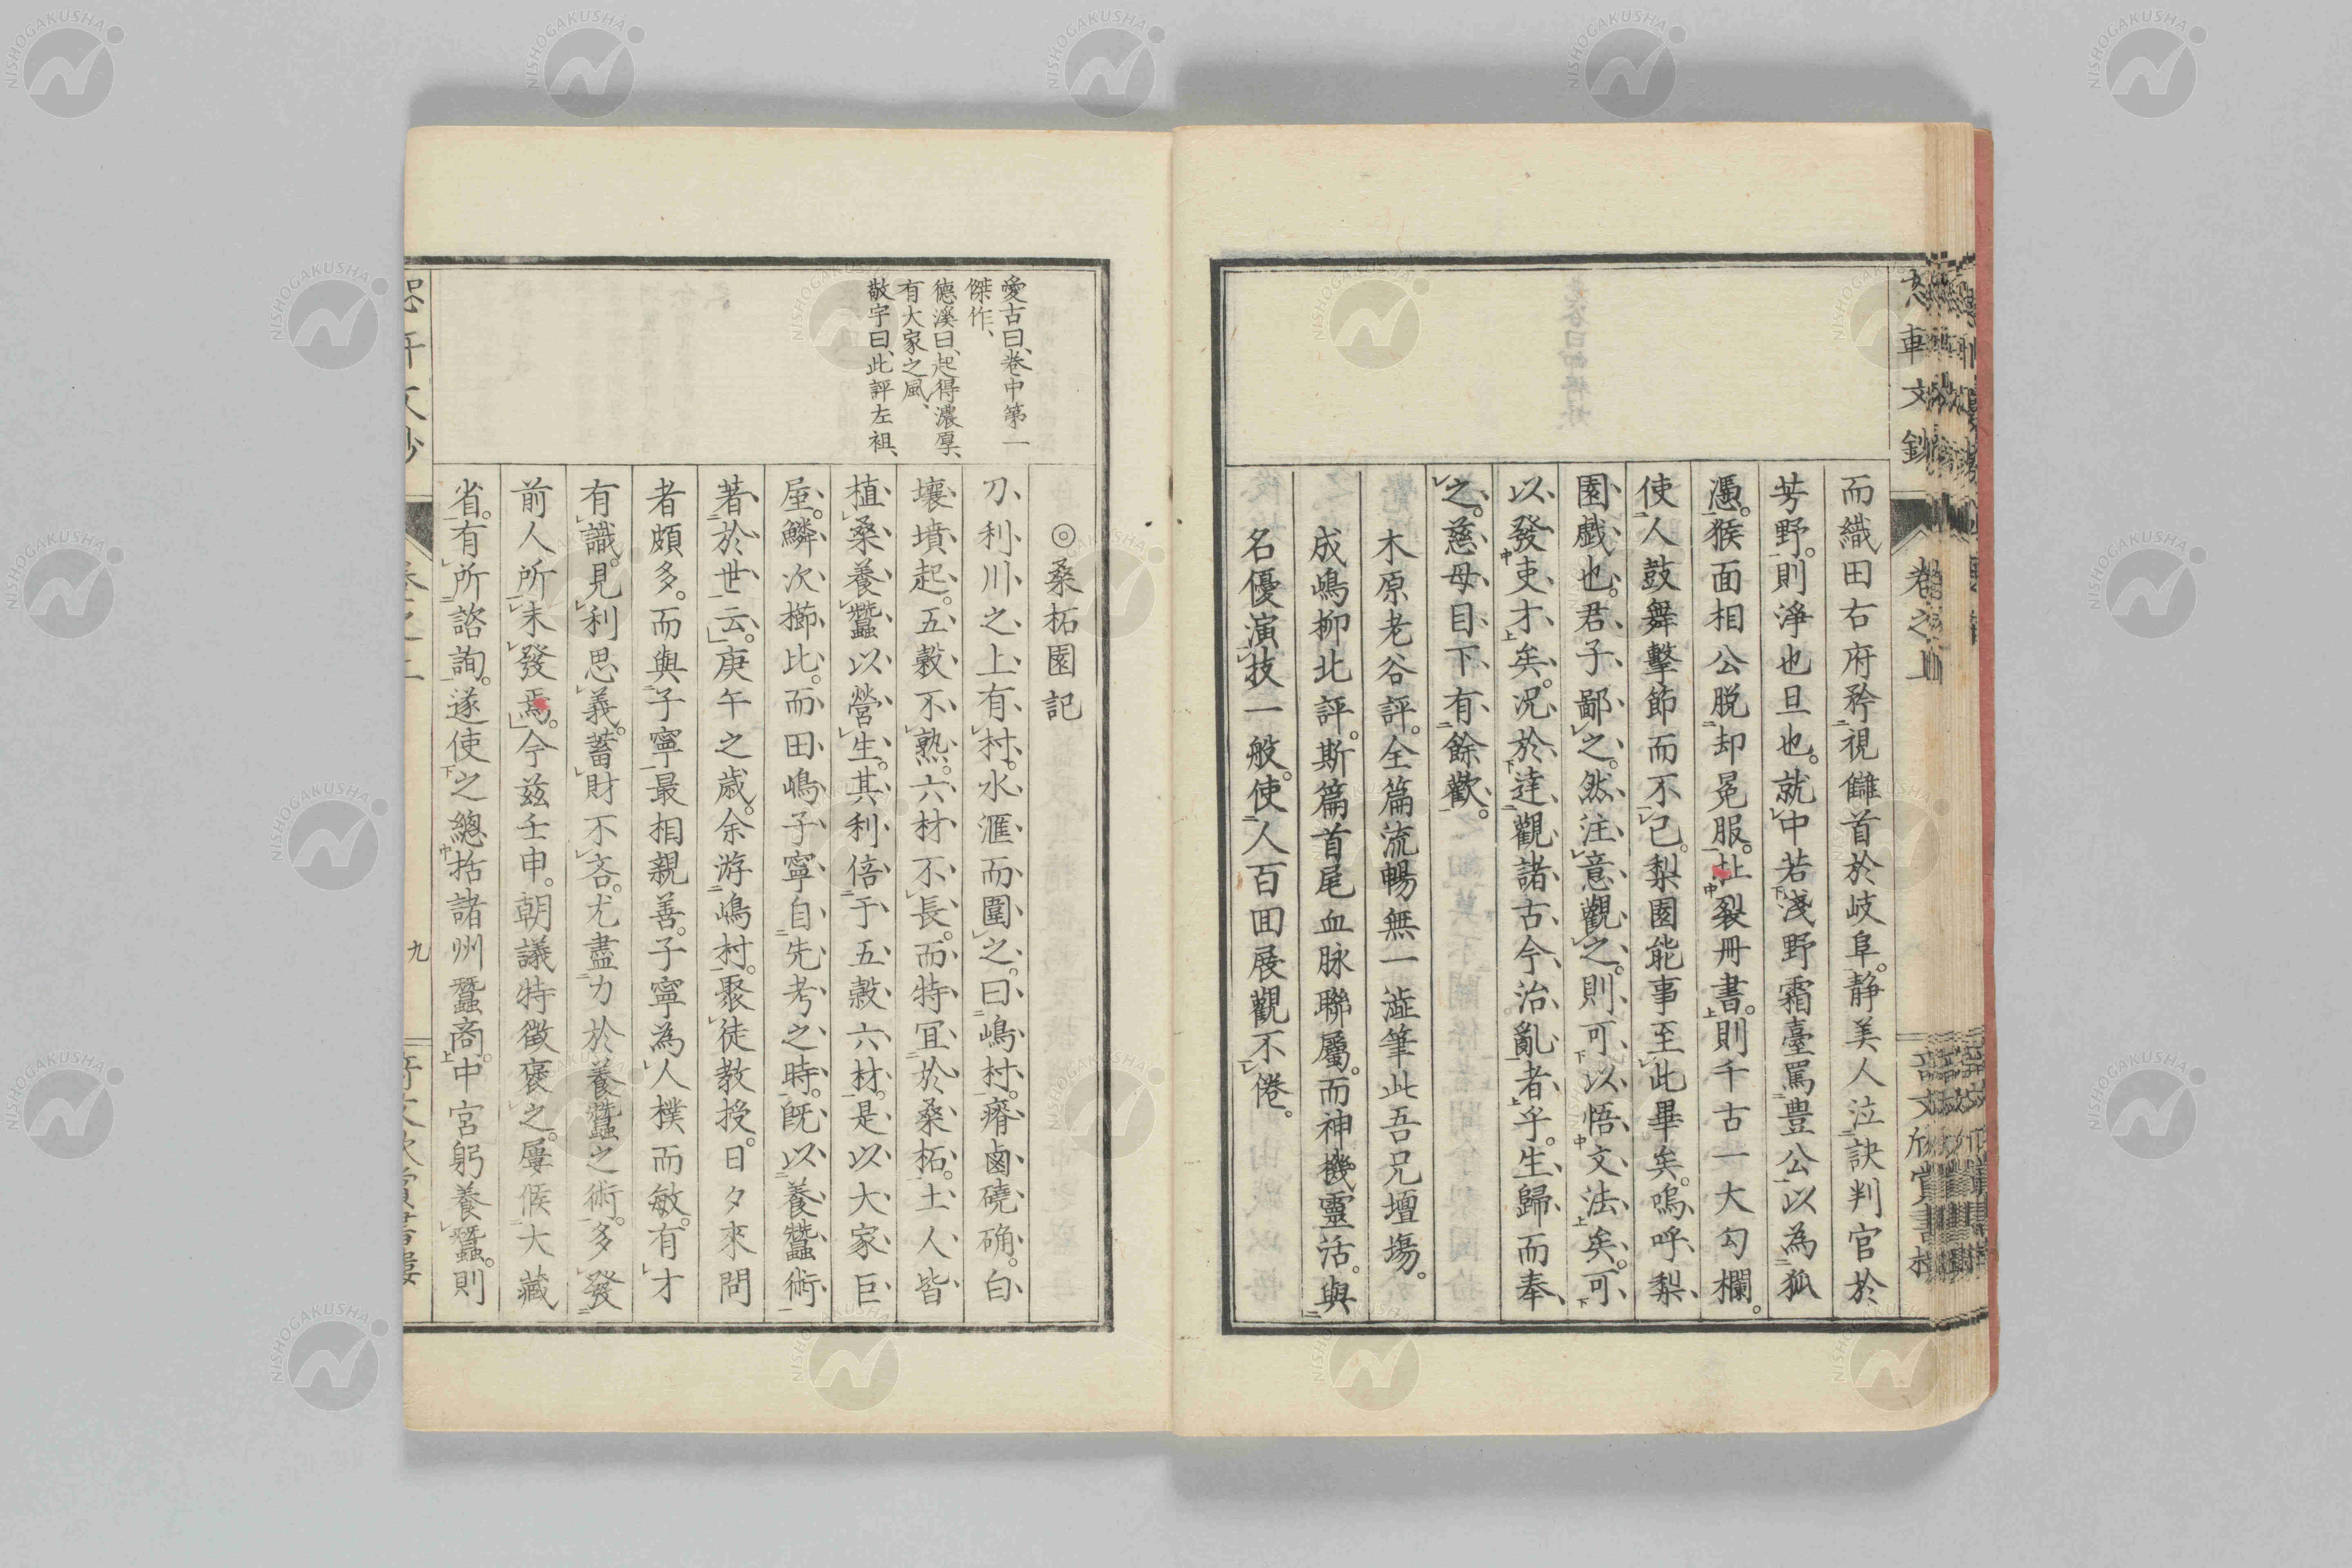 而織田右府矜視讎首於岐阜。静美人泣訣判官於
芳野。則淨也旦也。就中若淺野霜臺罵豊公以為狐
憑。猴面相公脱却冕服。扯裂冊書。則千古一大勾欄。
使人鼓舞擊節而不已。梨園能事至此畢矣。嗚呼、梨
園戯也。君子鄙之。然注意觀之。則可以悟文法矣。可
以發吏才矣。況於達觀諸古今治亂者乎。生歸而奉
之慈母。目下有餘歡。
木原老谷評。全篇流暢無一澁筆此吾兄壇場。
成嶋柳北評。斯篇首尾血脉聯屬。而神機靈活。與
名優演技一般。使人百囬展觀不倦。
愛古曰、卷中第一
傑作、
德溪曰、起得濃厚、
有大家之風、
敬宇曰、此評左袒、
◎桑柘園記
刀利川之上有村。水滙而圍之。曰嶋村。瘠鹵磽确。白
壤墳起。五穀不熟。六材不長。而特宜於桑柘。土人皆
植桑養蠶以營生。其利倍于五穀六材。是以大家巨
屋。鱗次櫛比。而田嶋子寧自先考之時。既以養蠶術
著於世云。庚午之歳。余游嶋村。聚徒教授。日夕來問
者頗多。而與子寧最相親善。子寧為人樸而敏。有才
有識。見利思義。蓄財不吝。尤盡力於養蠶之術。多發
前人所未發焉。今兹壬申。朝議特徴褒之。屢候大藏
省。有所諮詢。遂使之總括諸州蠶商。中宮躬養蠶。則
九
卷之上
NISHOGAKUSHA